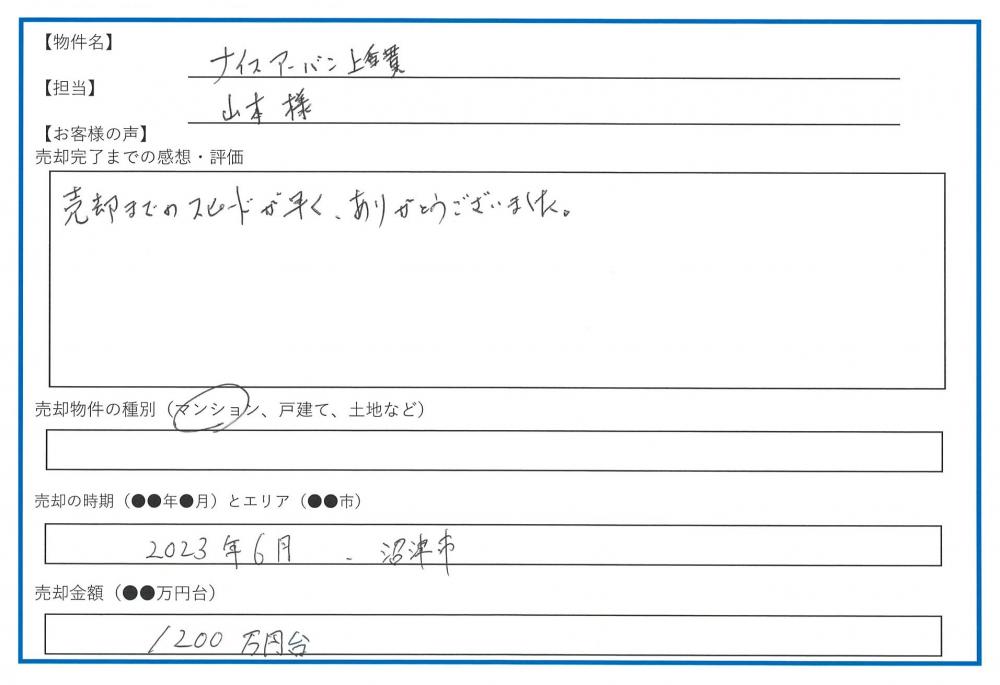 【物件名】
ナイスアーバン上香貫
【担当】
山本 様
【お客様の声】
売却完了までの感想・評価
売却までのスピードが早く、ありがとうございました。
売却物件の種別（マンション、戸建て、土地など）
売却の時期（●●年●月）とエリア（●●市）
2023年6月 、沼津市
売却金額（●●万円台）
1200万円台